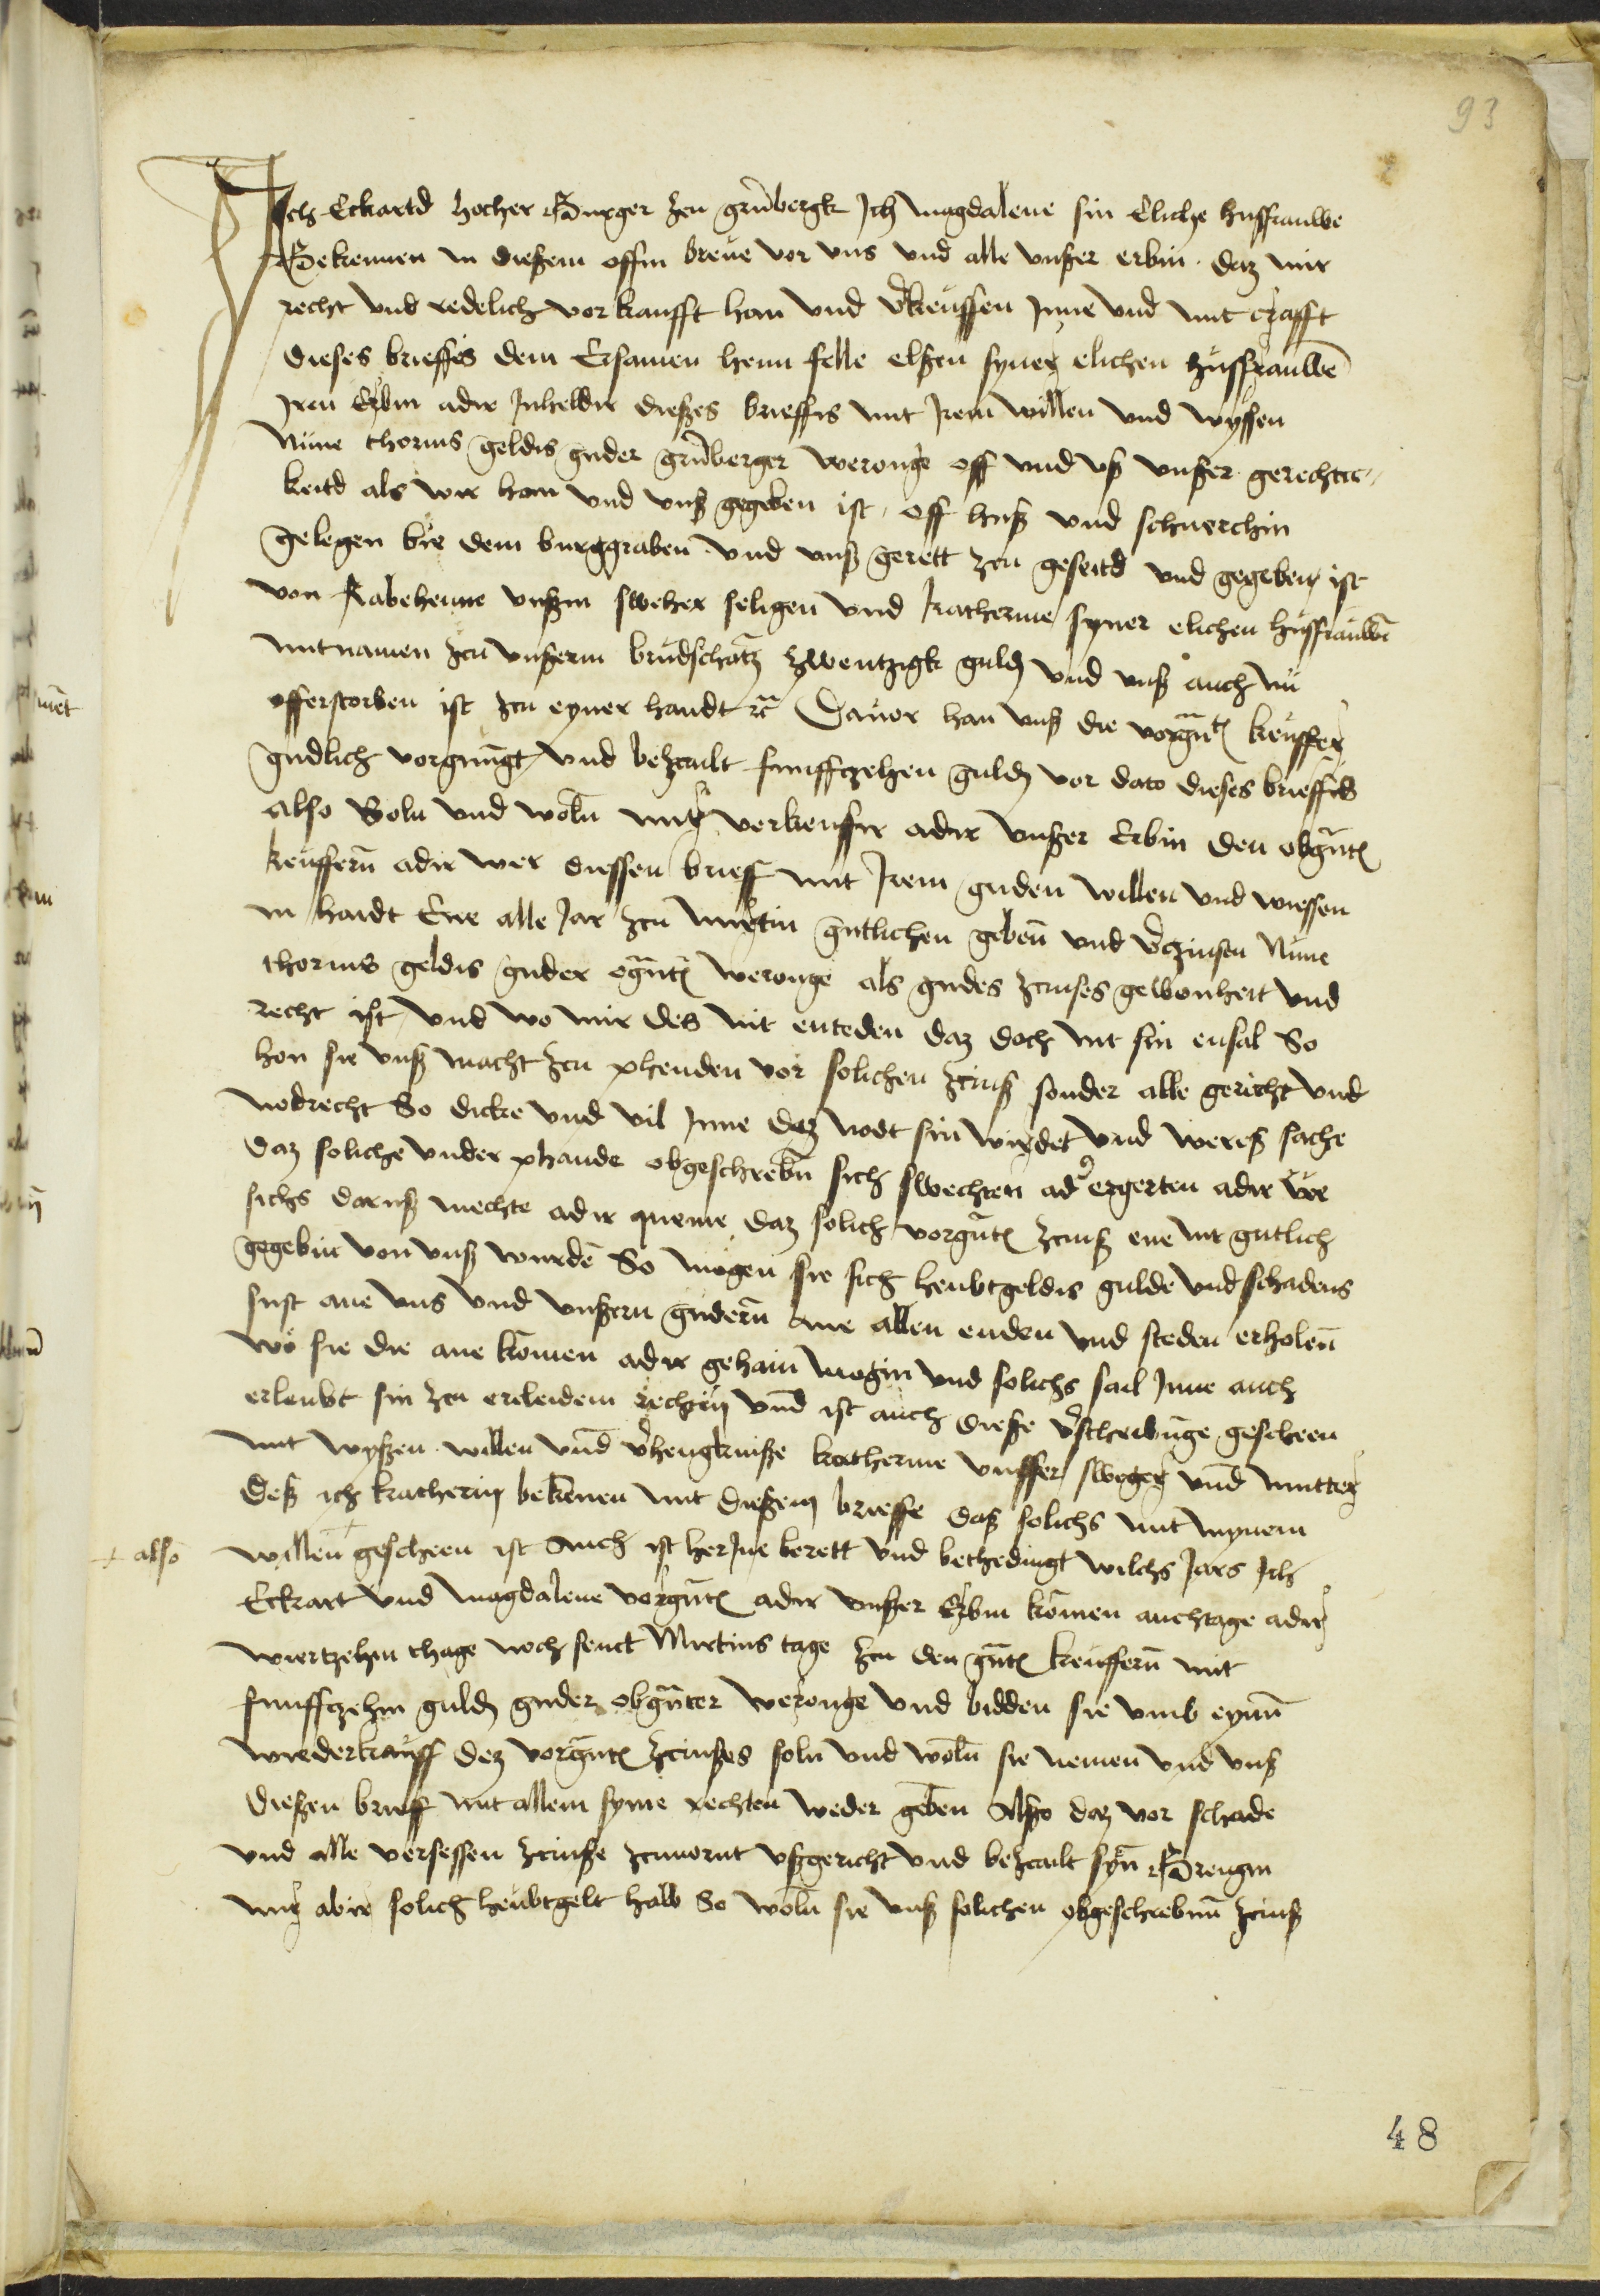 93
Ich Eckartd hocher Burger zcu grunbergk Ich magdalene sin Eliche husfrauwe
Bekennen in dießem offin breue vor vns vnd alle vnßer erbin daz mir
recht vnd redelich vorkaufft han vnd v̾keuffen Inne vnd mit crafft
dieses brieffes dem Ersamen henn felle elßen syner elichen hußfrauwē
Iren Erbin adir Inheldir dießes brieffis mit Irem willen vnd wyssen
Nune thornus geldis guder grūberger weronge off vnd vß vnßer gerechtic-
keitd als wir han vnd vnß gegeben ist off huß vnd schuerchin
gelegen bie dem burggraben vnd vnß gerett zcu geseitd vnd gegeben ist
von Rabehenne vnßm sweher seligen vnd katherine syner elichen hußfrauwē
mit namen zcu vnßerm brudschatz zwentzigk guld vnd vnß auch nu
offerstorben ist zcu eyner handt rc̄ Dauor han vnß die vorgn̄t keuffer
gudlich vorgnugt vnd bezcalt funffczehen guld vor dato dieses brieffis
also Soln vnd woln̄ mir verkeufir adir vnßer Erbin den obgn̄t
keuffern̄ adir wer diessen brieff mit Irem guden willen vnd wiessen
in haidt Ene alle Jar zcu mertin gutlichen geben̄ vnd v̾czinsen Nune
thornus geldis guder ogn̄t weronge als gudes zcinses gewonheit vnd
recht ist vnd wo mir des nit enteden daz doch nit sin ensal So
hon sie vnß macht zcu phenden vor solichen zcinß sonder alle gericht vnd
nodrecht So dicke vnd vil Inne daz nodt sin wirdet vnd wereß sache
daz soliche vnder phande obgeschrebn̄ sich swechten ad̾ ergerten adir we
sichs daruß mechte adir queme daz solich vorgn̄t zcinß ene nit gutlich
gegebin von vnß wurdē So mogen sie sich heubtgeldis gulde vnd schadens
sust ane vns vnd vnßern gudern̄ ane allen enden vnd steden erholen̄
wo sie die ane komen adir gehain mogin vnd solichs sail Inne auch
erleubt sin zcu ercleidem rechtin vnd ist auch dieße v̾schribunge gescheen
mit wyßen willen vnd v̾hengkniße katherine vnsser sweger vnd mutter
deß ich katherin bekenen mit dießem brieffe daß solichs mit mynem
+ also willen + gescheen ist Auch ist her Jne berett vnd bethedingt wilchs Jars Ich
Eckart vnd magdalene vorgn̄t adir vnßer Erbin komen auchtage adir
wiertzehin thage noch senct Mertins tage zcu den gn̄t keuffern̄ mit
funffczehin guld guder obgn̄ter weronge vnd bidden sie vmb eynn̄
wiederkauff dez vorgn̄t zcinßes soln vnd woln̄ sie nemen vnd vnß
dießen brieff mit allem syme rechten weder geben Also daz vor schade
vnd alle versessen zcinße zcuuornt vßgericht vnd bezcalt syn̄ Brengin
mir abir solich heubtgelt halb So woln̄ sie vnß solichen obgeschrebinn̄ zcinß
48